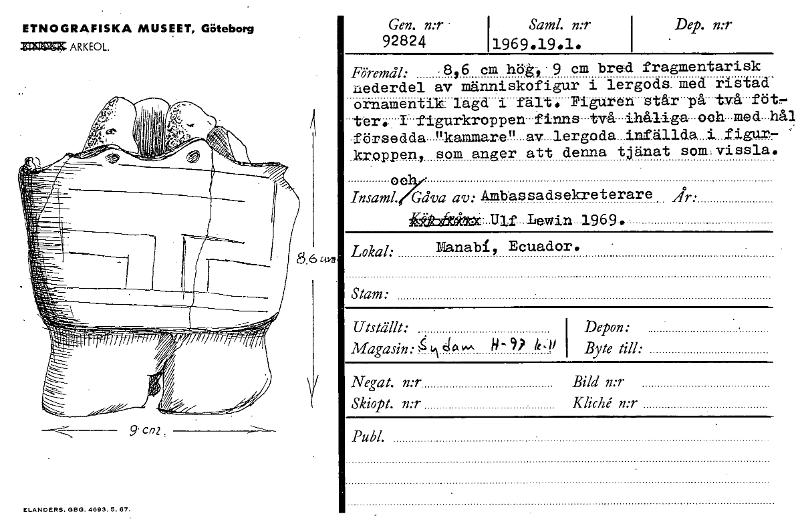 ETNOGRAFISKA MUSEET, Göteborg
ARKEOL.
8,6 cm
9 cm.
ELANDERS, GBG. 4093. 5. 67.
Gen. n:r Saml. n:r Dep. n:r
92824 1969.19.1.
Föremål: 8,6 cm hög, 9 cm bred fragmentarisk
nederdel av människofigur i lergods med ristad
ornamentik lagd i fält. Figuren står på två föt-
ter. I figurkroppen finns två ihåliga och med hål
försedda "kammare" av lergods infällda i figur-
kroppen, som anger att denna tjänat som vissla.
och
Insaml./Gåva av: Ambassadsekreterare År:
Köp från: Ulf Lewin 1969.
Lokal: Manabí, Ecuador.
Stam:
Utställt: Depon:
Magasin: Sydam H-97 k-11 Byte till:
Negat. n:r Bild n:r
Skiopt. n:r Kliché n:r
Publ.